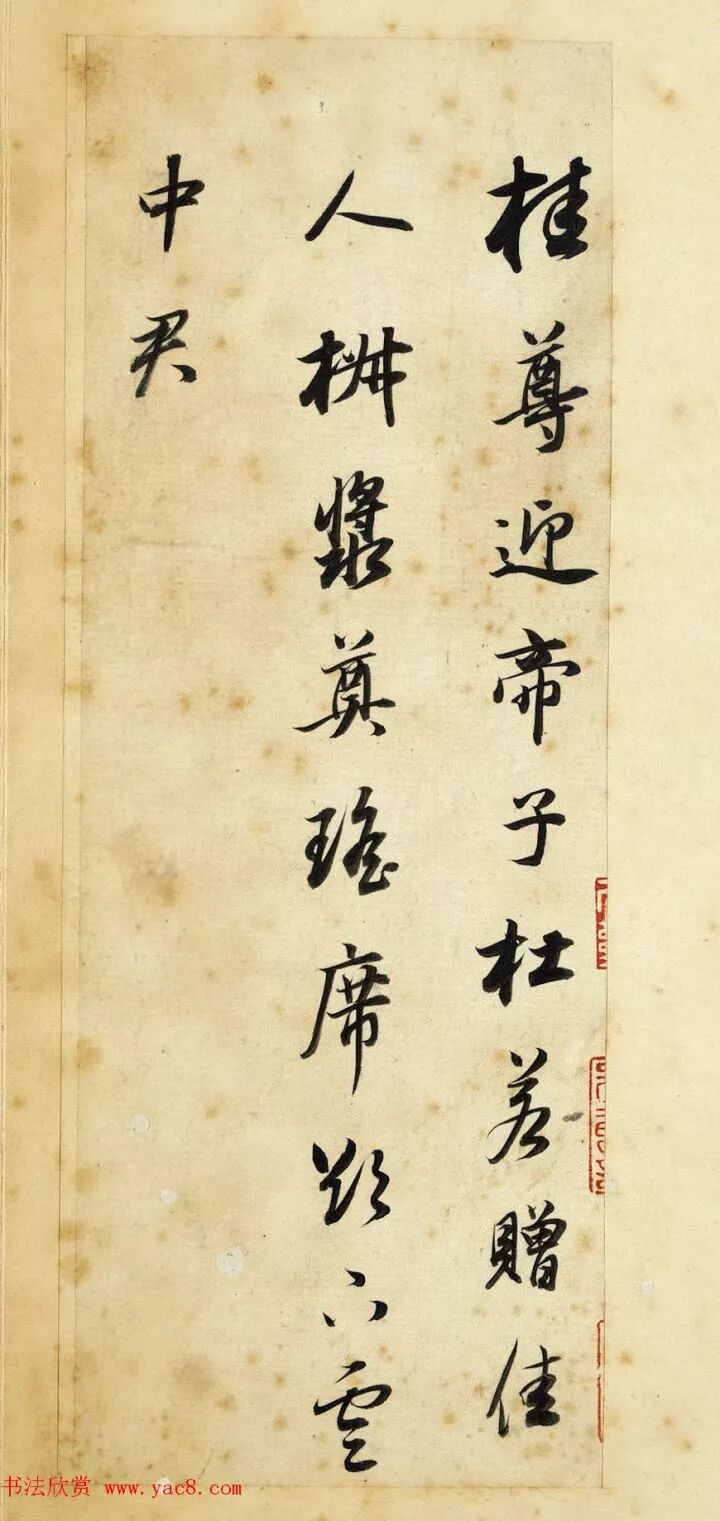 桂尊迎帝子杜若贈佳
人椒漿奠瑤席欲下雲
中君
书法欣赏 www.yac8.com